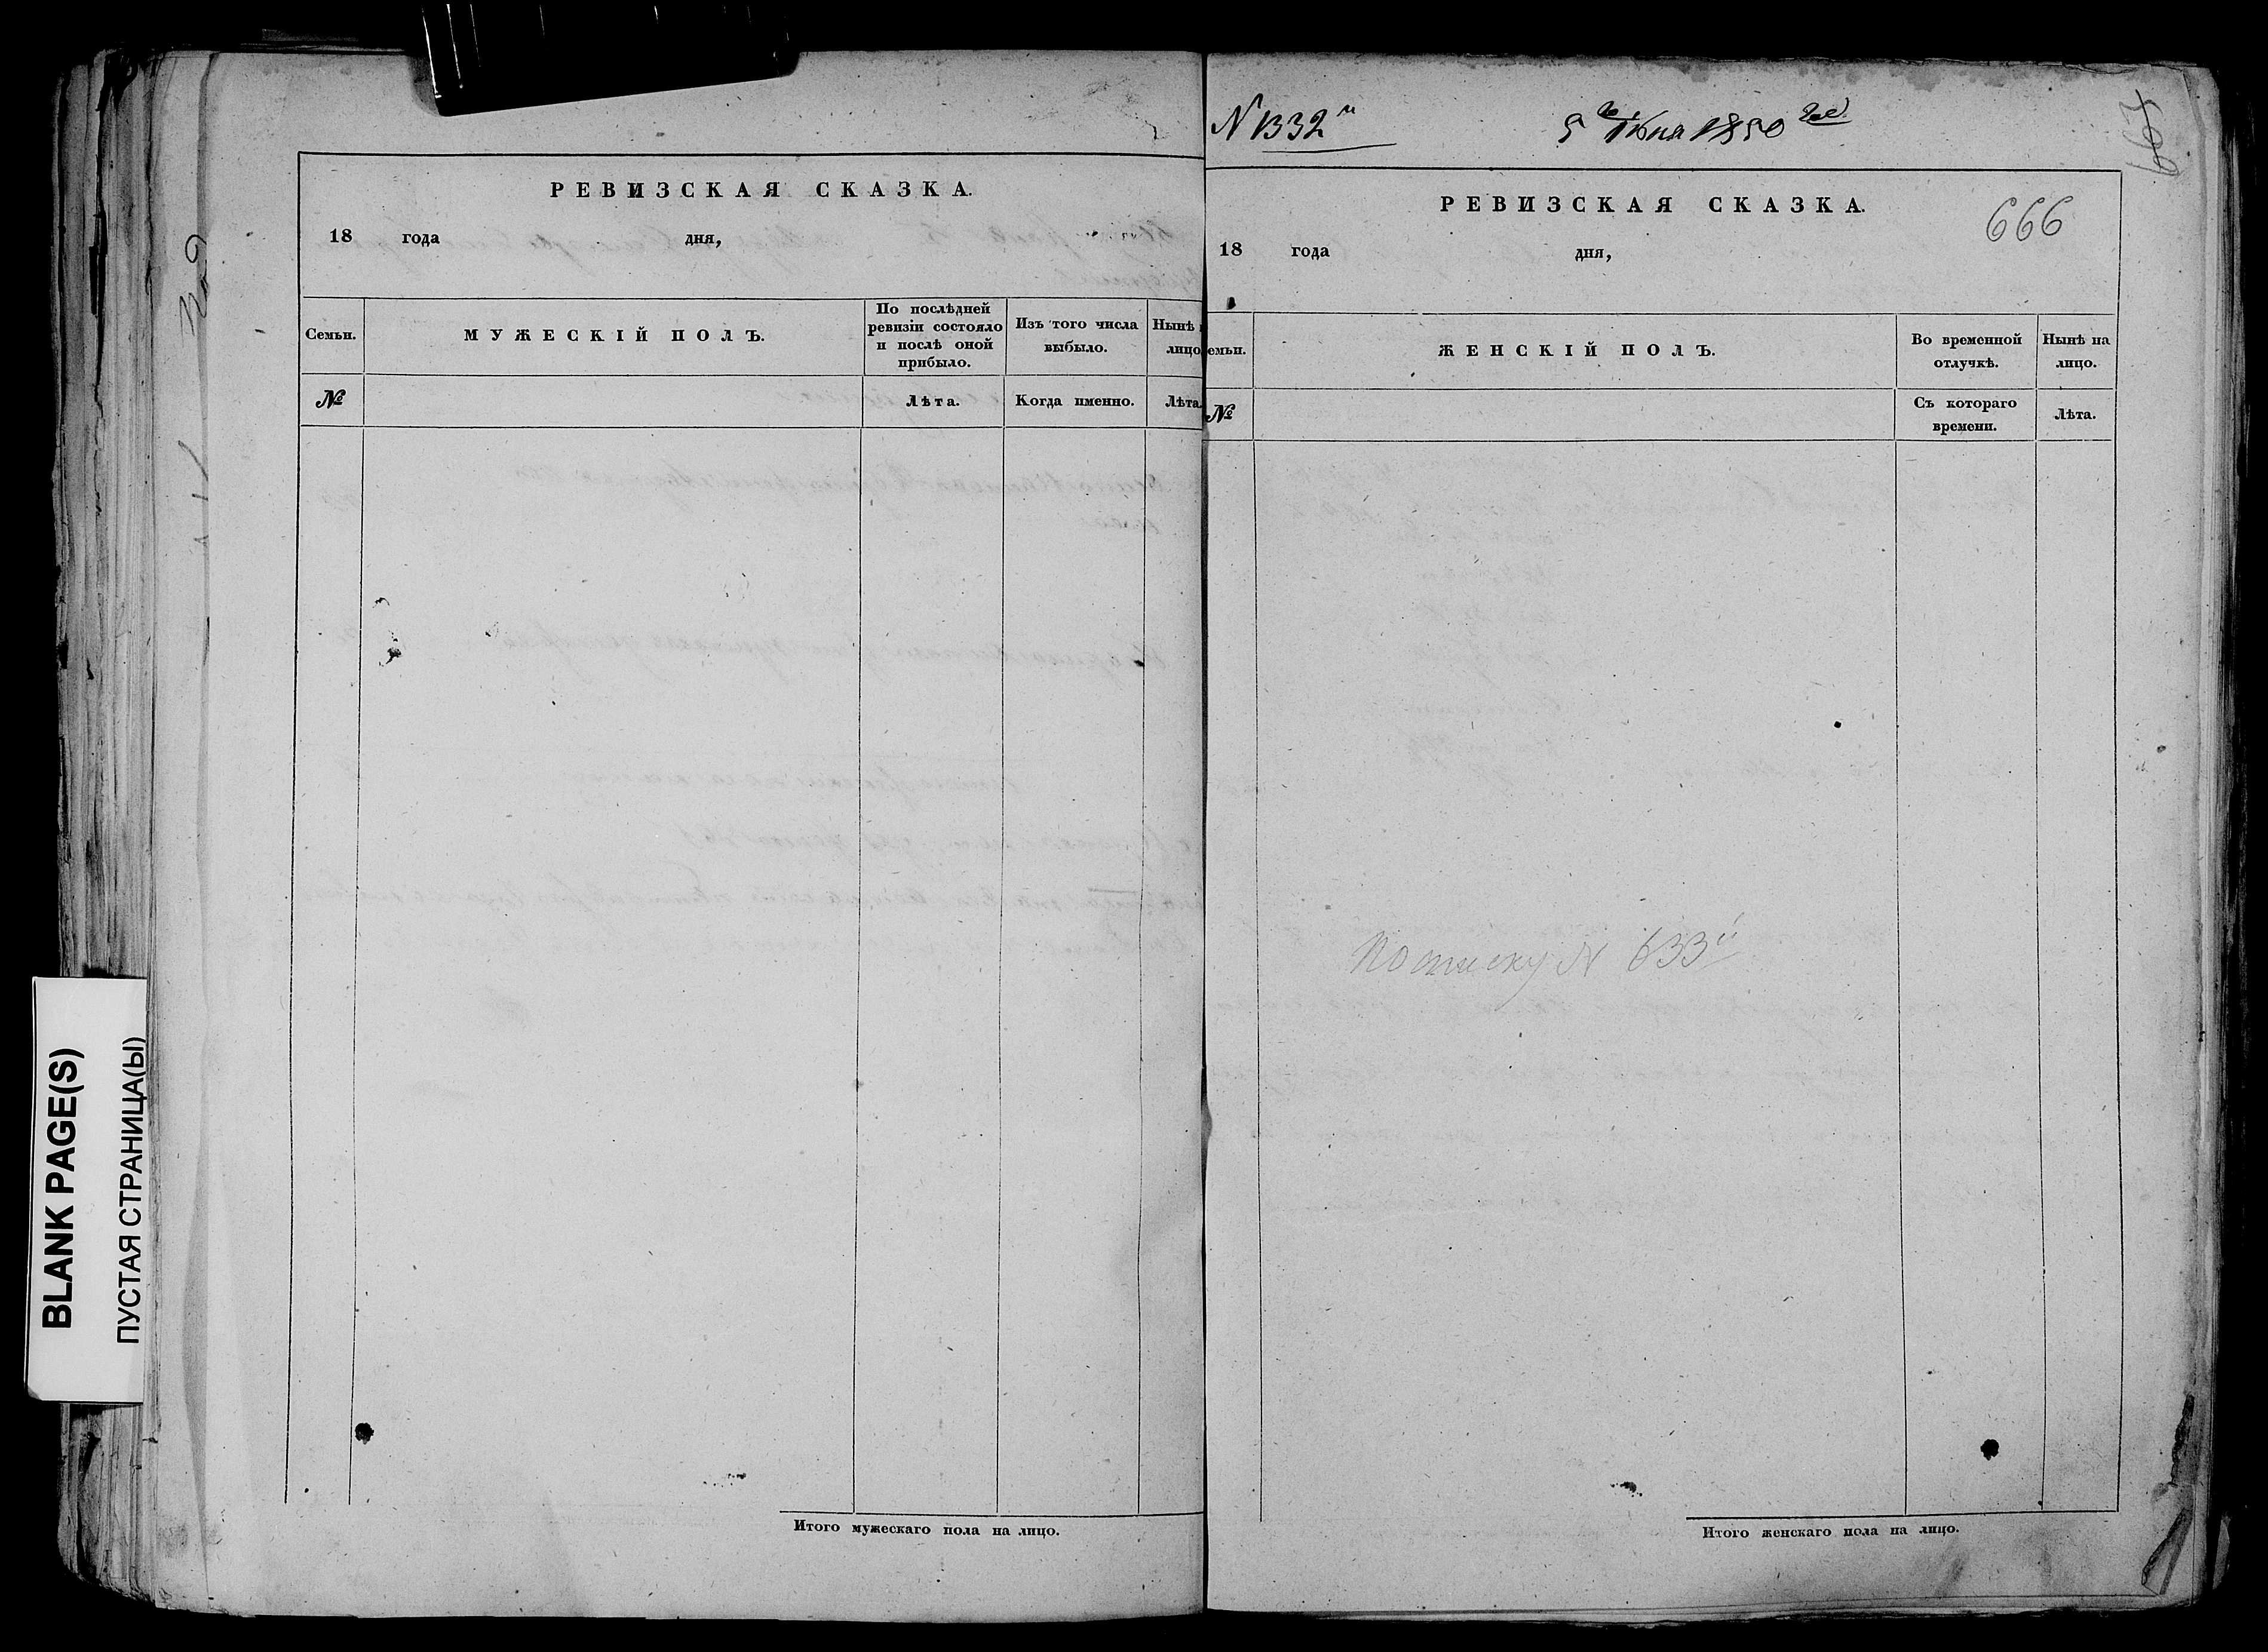 РЕВИЗСКАЯ СКАЗКА.
18 года дня,
Семьи.
МУЖЕСКІЙ ПОЛЪ.
По послѣдней
ревизіи состояло
и послѣ оной
прибыло.
Изъ того числа
выбыло.
Нынѣ
лицо
№
Лѣта.
Когда именно.
Лѣта.
Итого мужескаго пола на лицо.
BLANK PAGE(S)
ПУСТАЯ СТРАНИЦА(Ы)
N 1332й
5го Июня 1850 год
667
РЕВИЗСКАЯ СКАЗКА.
666
18 года дня,
емьи.
ЖЕНСКІЙ ПОЛЪ.
Во временной
отлучкѣ.
Нынѣ на
лицо.
№
Съ котораго
времени.
Лѣта.
По списку N 633й
Итого женскаго пола на лицо.